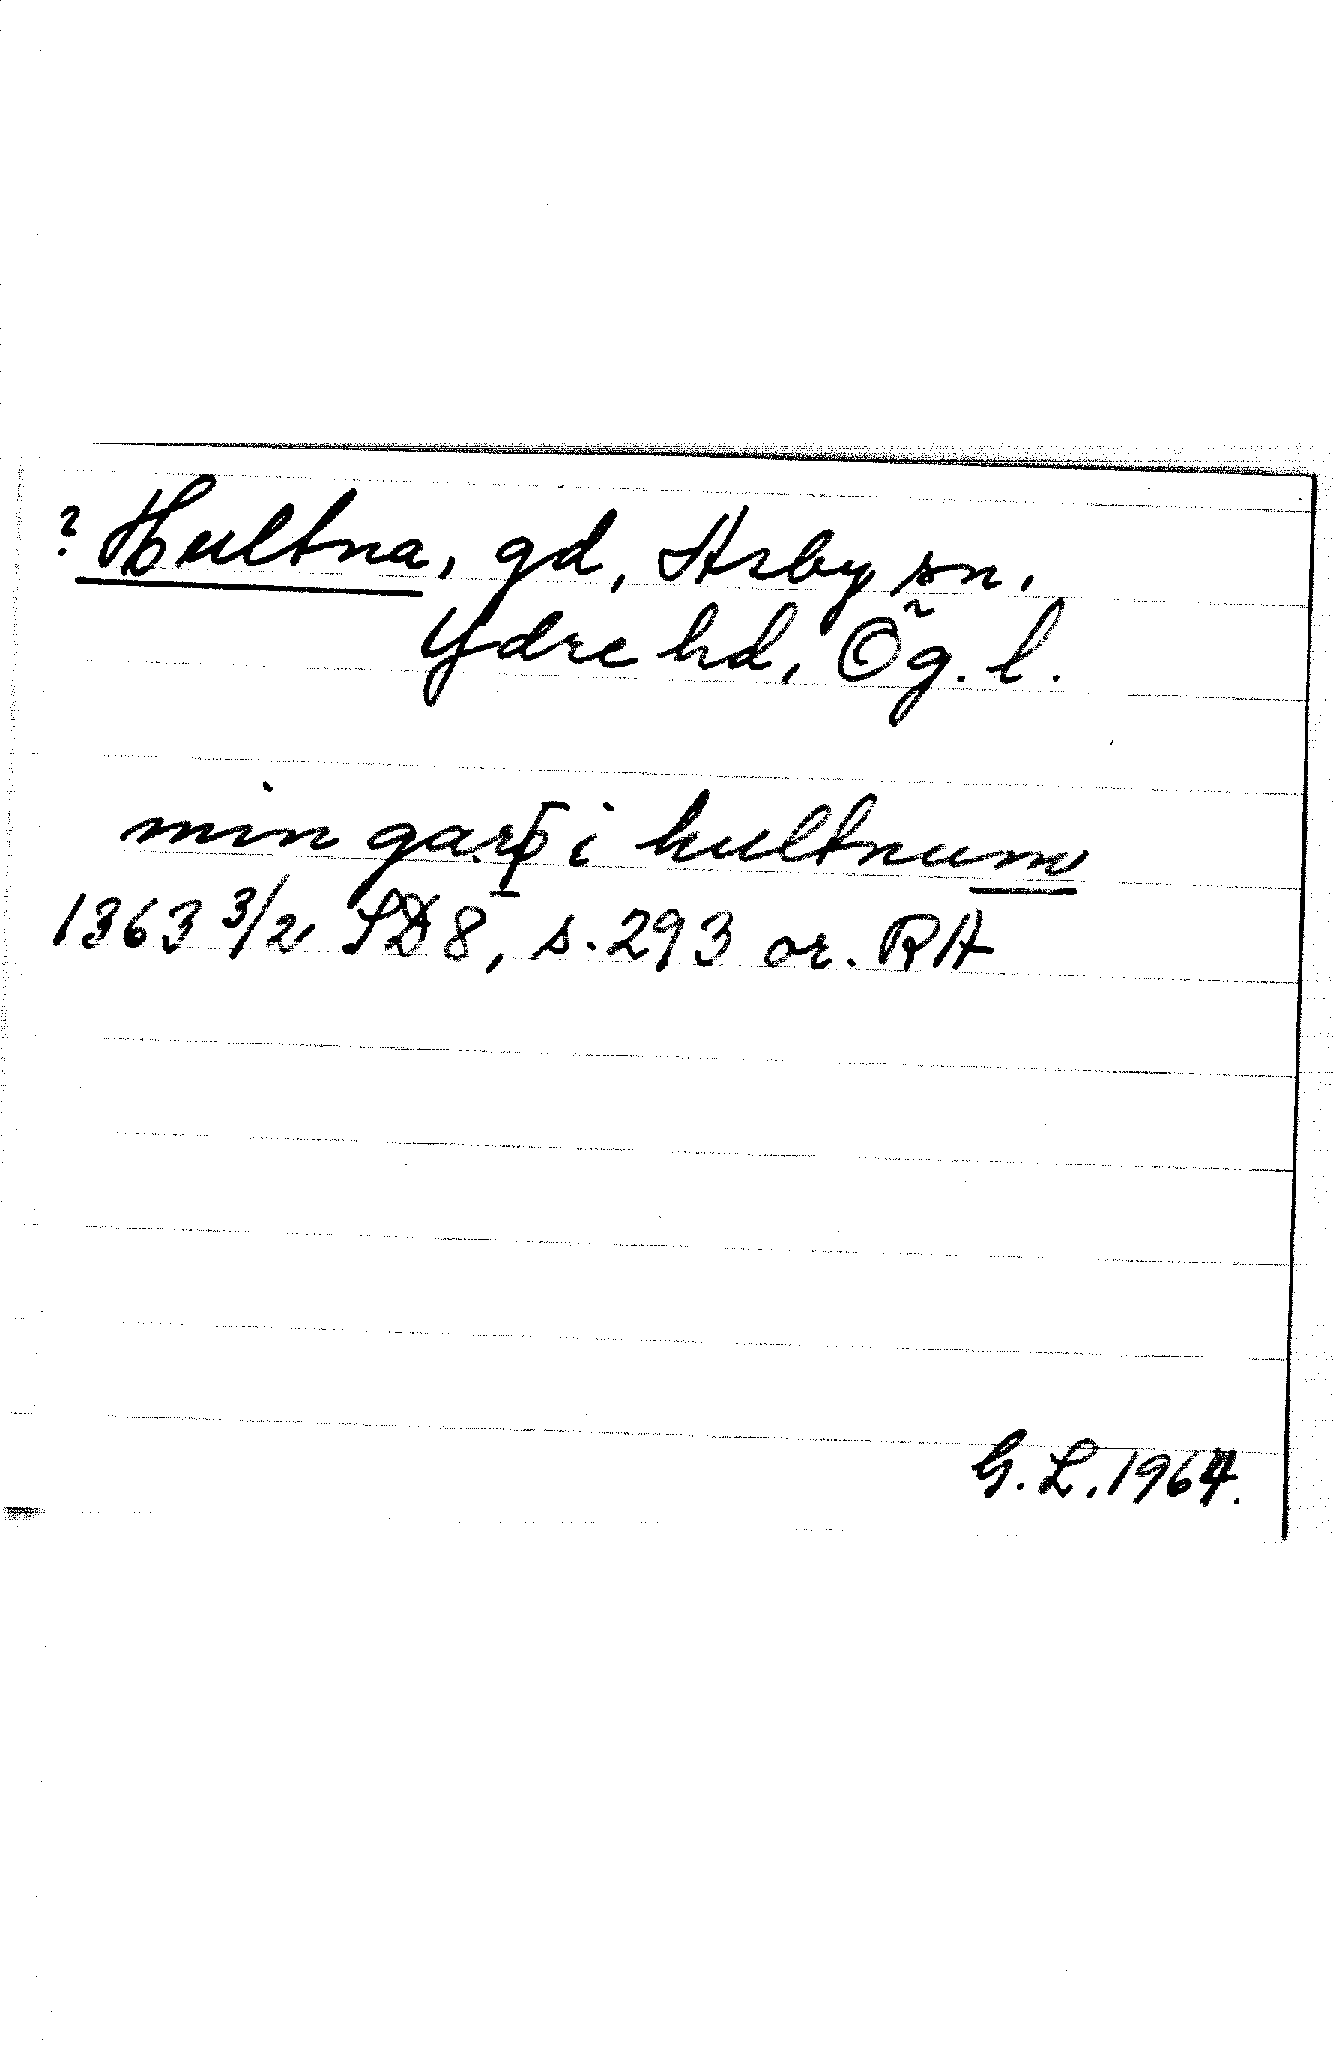 ? Hultna, gd, Asby sn.
Ydre hd, Ög. l.
min garþ i hultnum
1363 3/2 SD 8, s. 293 or. RA
G. L. 1964.